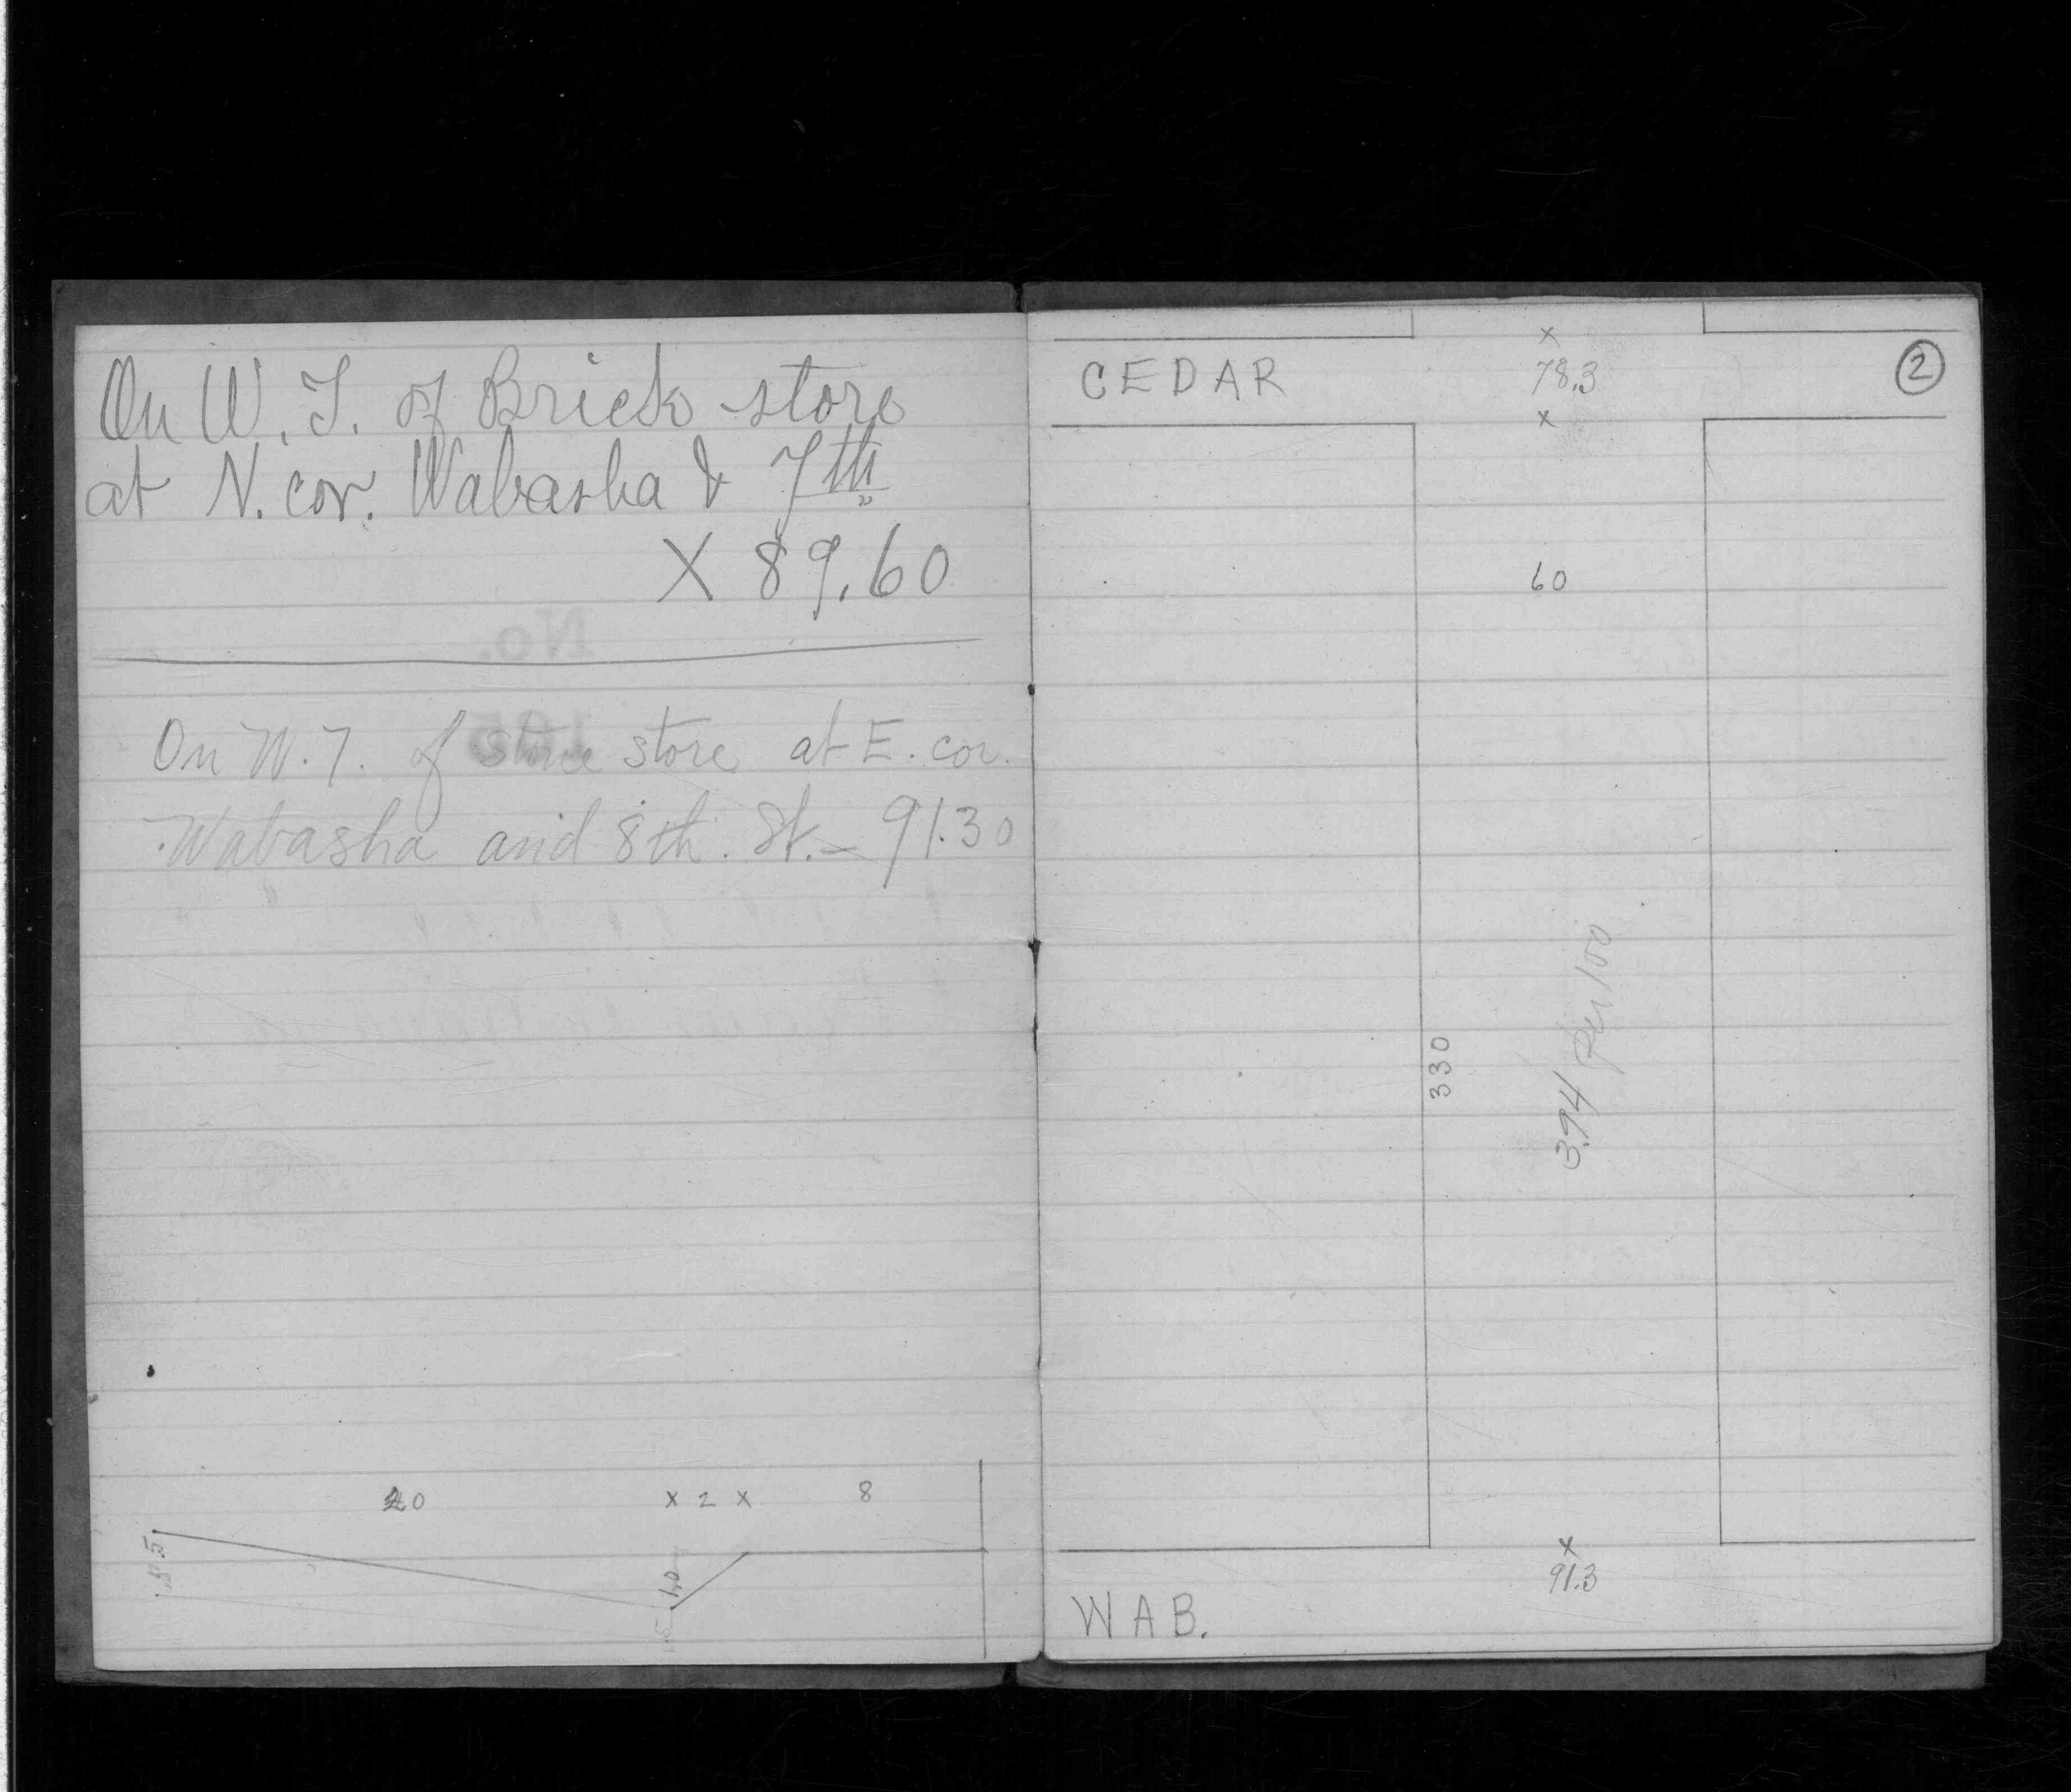 On W. T. of Brick store
at N. cor. Wabasha & 7th
X 89.60
On W. T. of stone store at E. cor.
Wabasha and 8th. St. – 91.30
20 x 2 x 8
1.0
CEDAR
x
78.3
x
2
60
330
3.94 per 100
x
91.3
WAB.